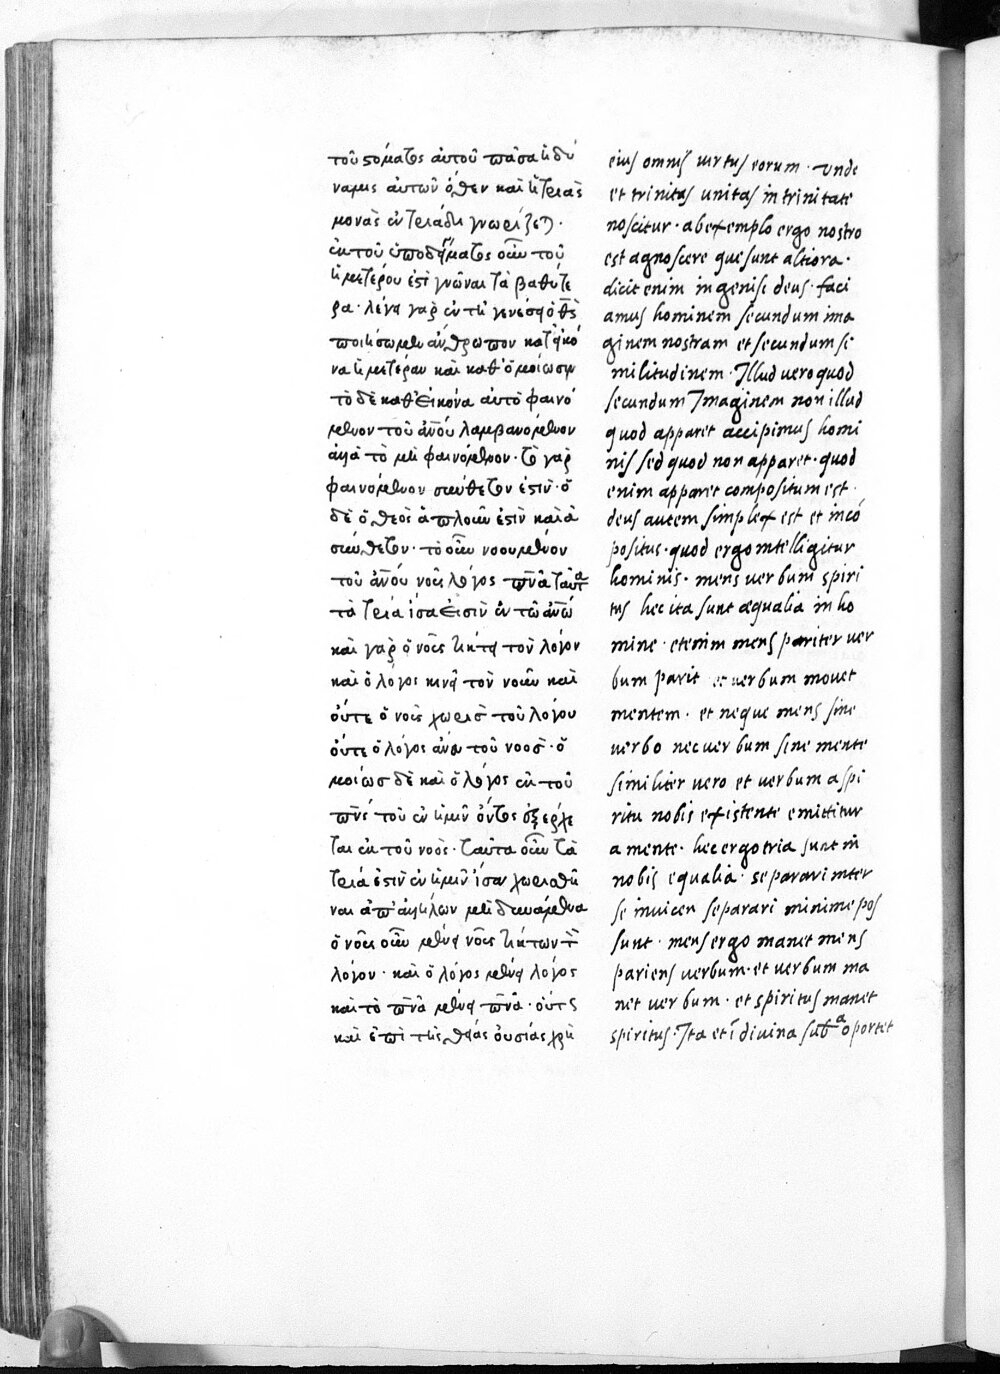 τοῦ στόματος αὐτοῦ πᾶσα ἡ δύ
ναμις αὐτῶν ὅθεν καὶ ἡ τριὰς
μονὰς ἐν τριάδι γνωρίζετ(αι) ·
ἐκ τοῦ ὑποδείγματος οὖν τοῦ
ἡμετέρου ἐστὶ γνῶναι τὰ βαθύτε
ρα · λέγει γὰρ ἐν τῇ γενέσει ὁ θ̅ς̅
ποιήσωμεν ἄνθρωπον κατ' εἰκό
να ἡμετέραν καὶ καθ' ὁμοίωσιν
τὸ δὲ καθ' εἰκόνα αὐτὸ φαινό
μενον τοῦ ἀνου λαμβανόμενον
ἀλλὰ τὸ μὴ φαινόμενον · τὸ γὰρ
φαινόμενον σύνθετον ἐστὶν · ὁ
δὲ ὁ θεὸς ἁπλοῦν ἐστὶν καὶ ἀ
σύνθετον · τὸ οὖν νοουμένον
τοῦ ἀνου νοῦς λόγος πνα ταῦτα
τὰ τρία ἴσα εἰσὶν ἐν τῶ ἀνω
καὶ γὰρ ὁ νοῦς τίκτει τὸν λόγον
καὶ ὁ λόγος κινεῖ τὸν νοῦν καὶ
οὔτε ὁ νοῦς χωρὶσ τοῦ λόγου
οὔτε ὁ λόγος ἄνευ τοῦ νοοσ · ὁ
μοίωσ δὲ καὶ ὁ λόγος ἐκ τοῦ
πνς τοῦ ἐν ἡμῖν ὄντος ἐξέρχε
ται ἐκ τοῦ νοός · ταῦτα οὖν τὰ
τρία ἐστὶν ἐν ἡμῖν ἴσα χωρισθῆ
ναι ἀπ' ἀλλήλων μὴ δυνάμενα
ὁ νοῦς οὖν μένει νοῦς τίκτων τ
λόγον · καὶ ὁ λόγος μένει λόγος
καὶ τὸ πνα μένει πνα · οὕτς
καὶ ἐπὶ τῆς θείας οὐσίας χρὴ
eius omnis uirtus eorum · vnde
et trinitas unitas in trinitate
noscitur · ab exemplo ergo nostro
est agnoscere que sunt altiora ·
dicit enim in genisi deus · faci
amus hominem secundum ima
ginem nostram et secundum si
militudinem · Illud uero quod
secundum Imaginem non illud
quod apparet accipimus homi
nis sed quod non apparet · quod
enim apparet compositum est ·
deus autem simplex est et incó
positus · quod ergo intelligitur
hominis · mens uerbum spiri
tus hec ita sunt æqualia in ho
mine · etenim mens pariter uer
bum parit et uerbum mouet
mentem · et neque mens sine
uerbo nec uerbum sine mente
similiter uero et uerbum a spi
ritu nobis existente emittitur
a mente · hec ergo tria sunt in
nobis equalia · separari inter
se inuicen separari minime pos
sunt · mens ergo manet mens
pariens uerbum · et uerbum ma
net uerbum · et spiritus manet
spiritus · Ita et ī diuina subᵃ oportet